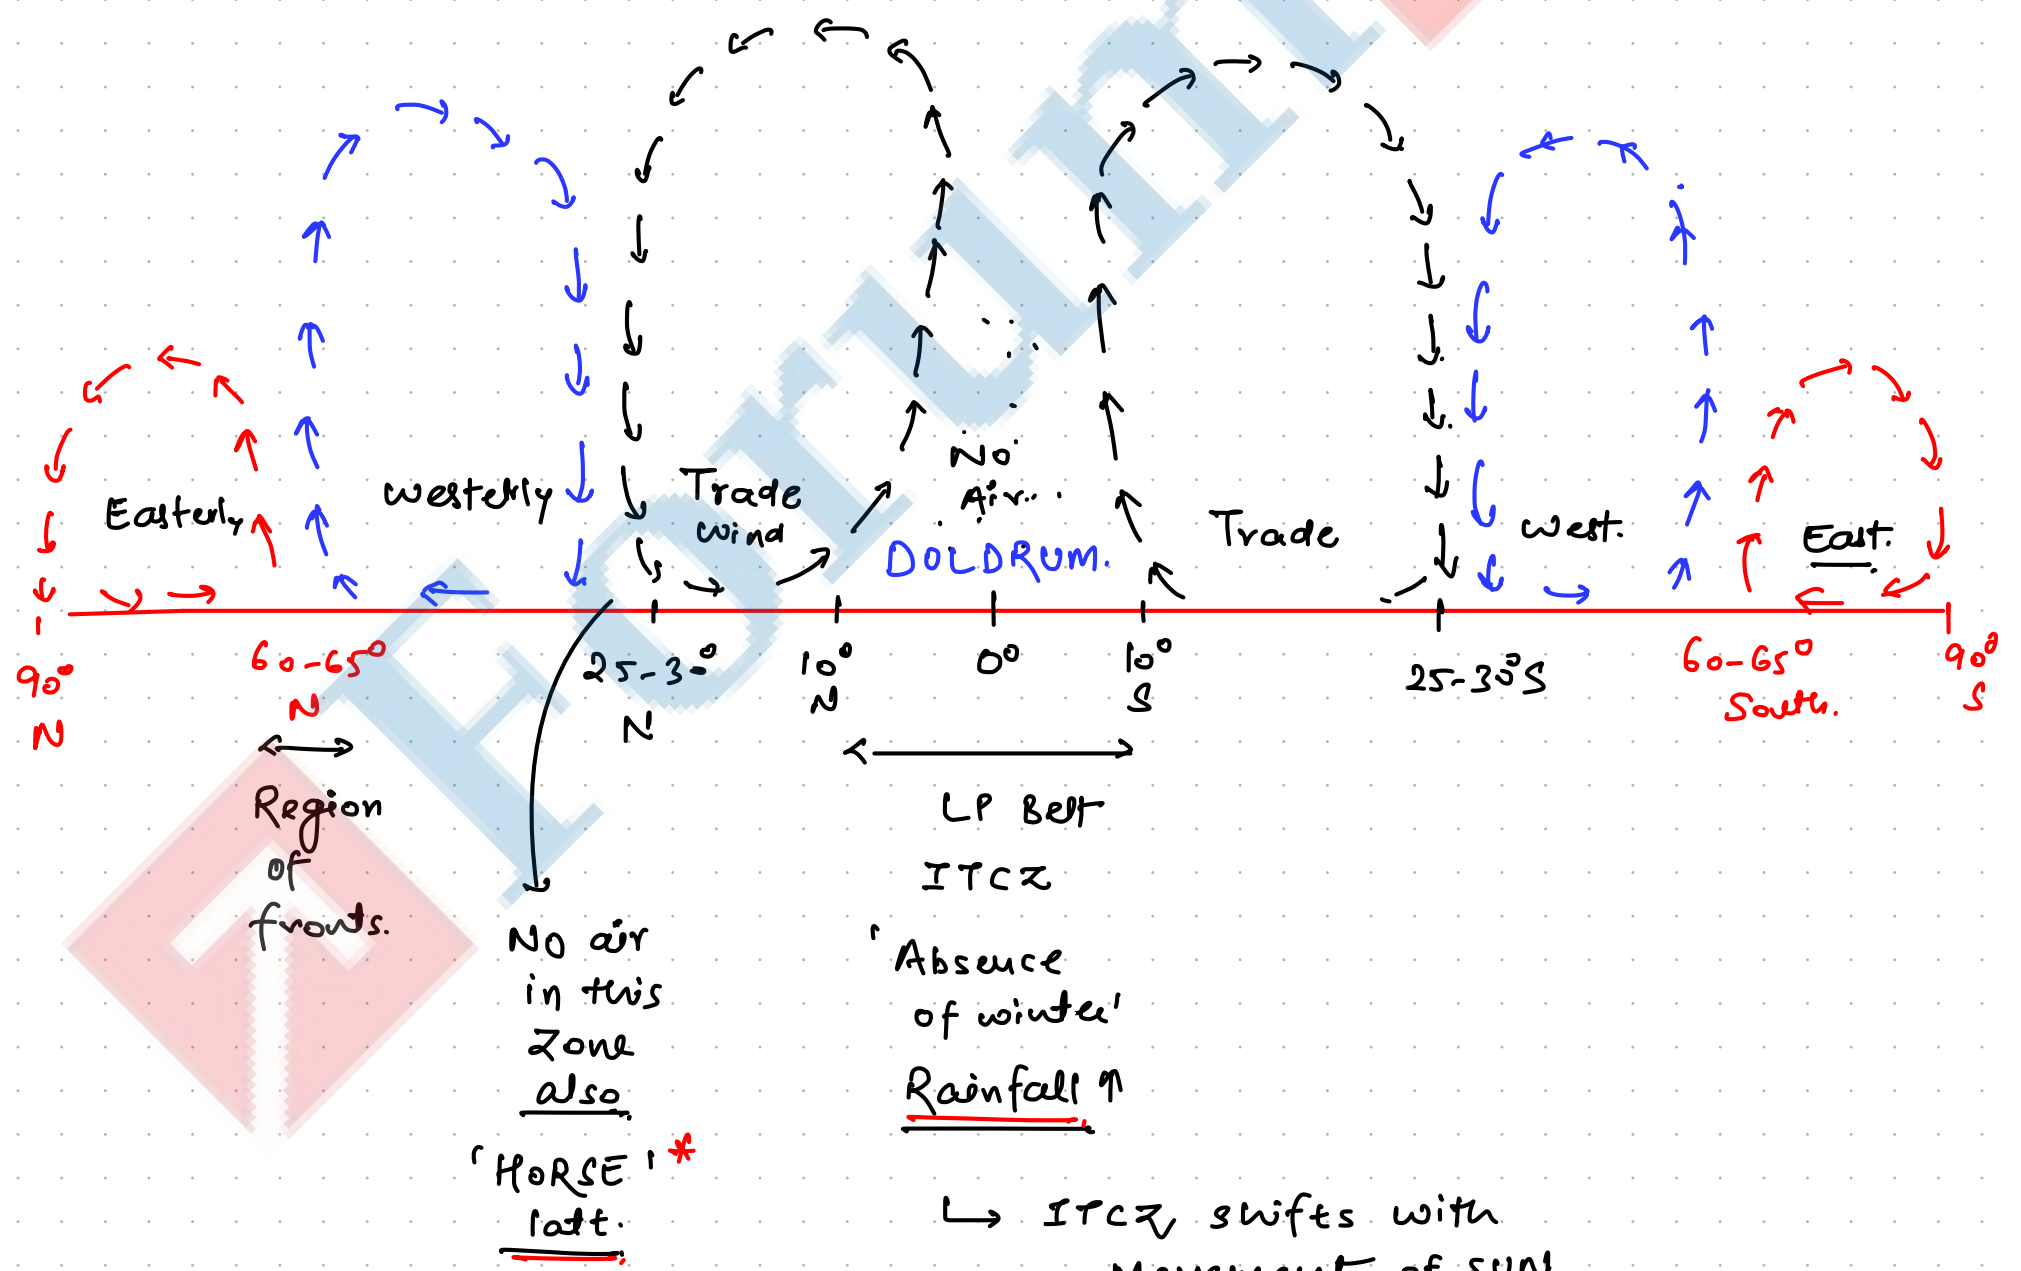 Forum
Easterly
Westerly
Trade
wind
No
Air...
DOLDRUM.
Trade
West.
East.
90°
N
60-65°
N
25-30°
N
10°
N
0°
10°
S
25-30°S
60-65°
South.
90°
S
Region
of
fronts.
No air
in this
Zone
also
'HORSE' *
latt.
LP Belt
ITCZ
'Absence
of winter'
Rainfall ↑
↳ ITCZ shifts with
Movement of sun